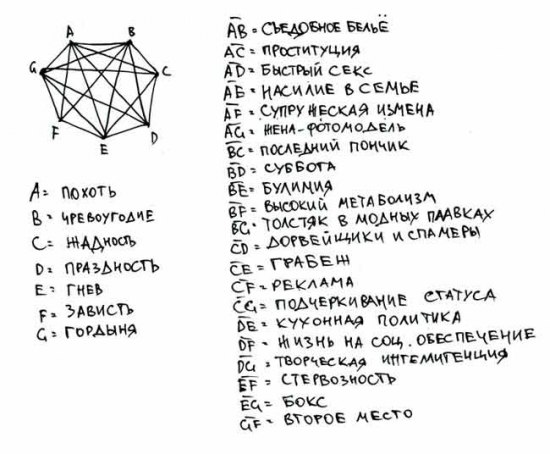 A B
G C
F D
E
A= ПОХОТЬ
B= ЧРЕВОУГОДИЕ
C= ЖАДНОСТЬ
D= ПРАЗДНОСТЬ
E= ГНЕВ
F= ЗАВИСТЬ
G= ГОРДЫНЯ
AB= СЪЕДОБНОЕ БЕЛЬЁ
AC= ПРОСТИТУЦИЯ
AD= БЫСТРЫЙ СЕКС
AE= НАСИЛИЕ В СЕМЬЕ
AF= СУПРУЖЕСКАЯ ИЗМЕНА
AG= ЖЕНА-ФОТОМОДЕЛЬ
BC= ПОСЛЕДНИЙ ПОНЧИК
BD= СУББОТА
BE= БУЛИМИЯ
BF= ВЫСОКИЙ МЕТАБОЛИЗМ
BG= ТОЛСТЯК В МОДНЫХ ПЛАВКАХ
CD= ДОРВЕЙЩИКИ И СПАМЕРЫ
CE= ГРАБЕЖ
CF= РЕКЛАМА
CG= ПОДЧЕРКИВАНИЕ СТАТУСА
DE= КУХОННАЯ ПОЛИТИКА
DF= ЖИЗНЬ НА СОЦ. ОБЕСПЕЧЕНИЕ
DG= ТВОРЧЕСКАЯ ИНТЕЛИГЕНЦИЯ
EF= СТЕРВОЗНОСТЬ
EG= БОКС
GF= ВТОРОЕ МЕСТО